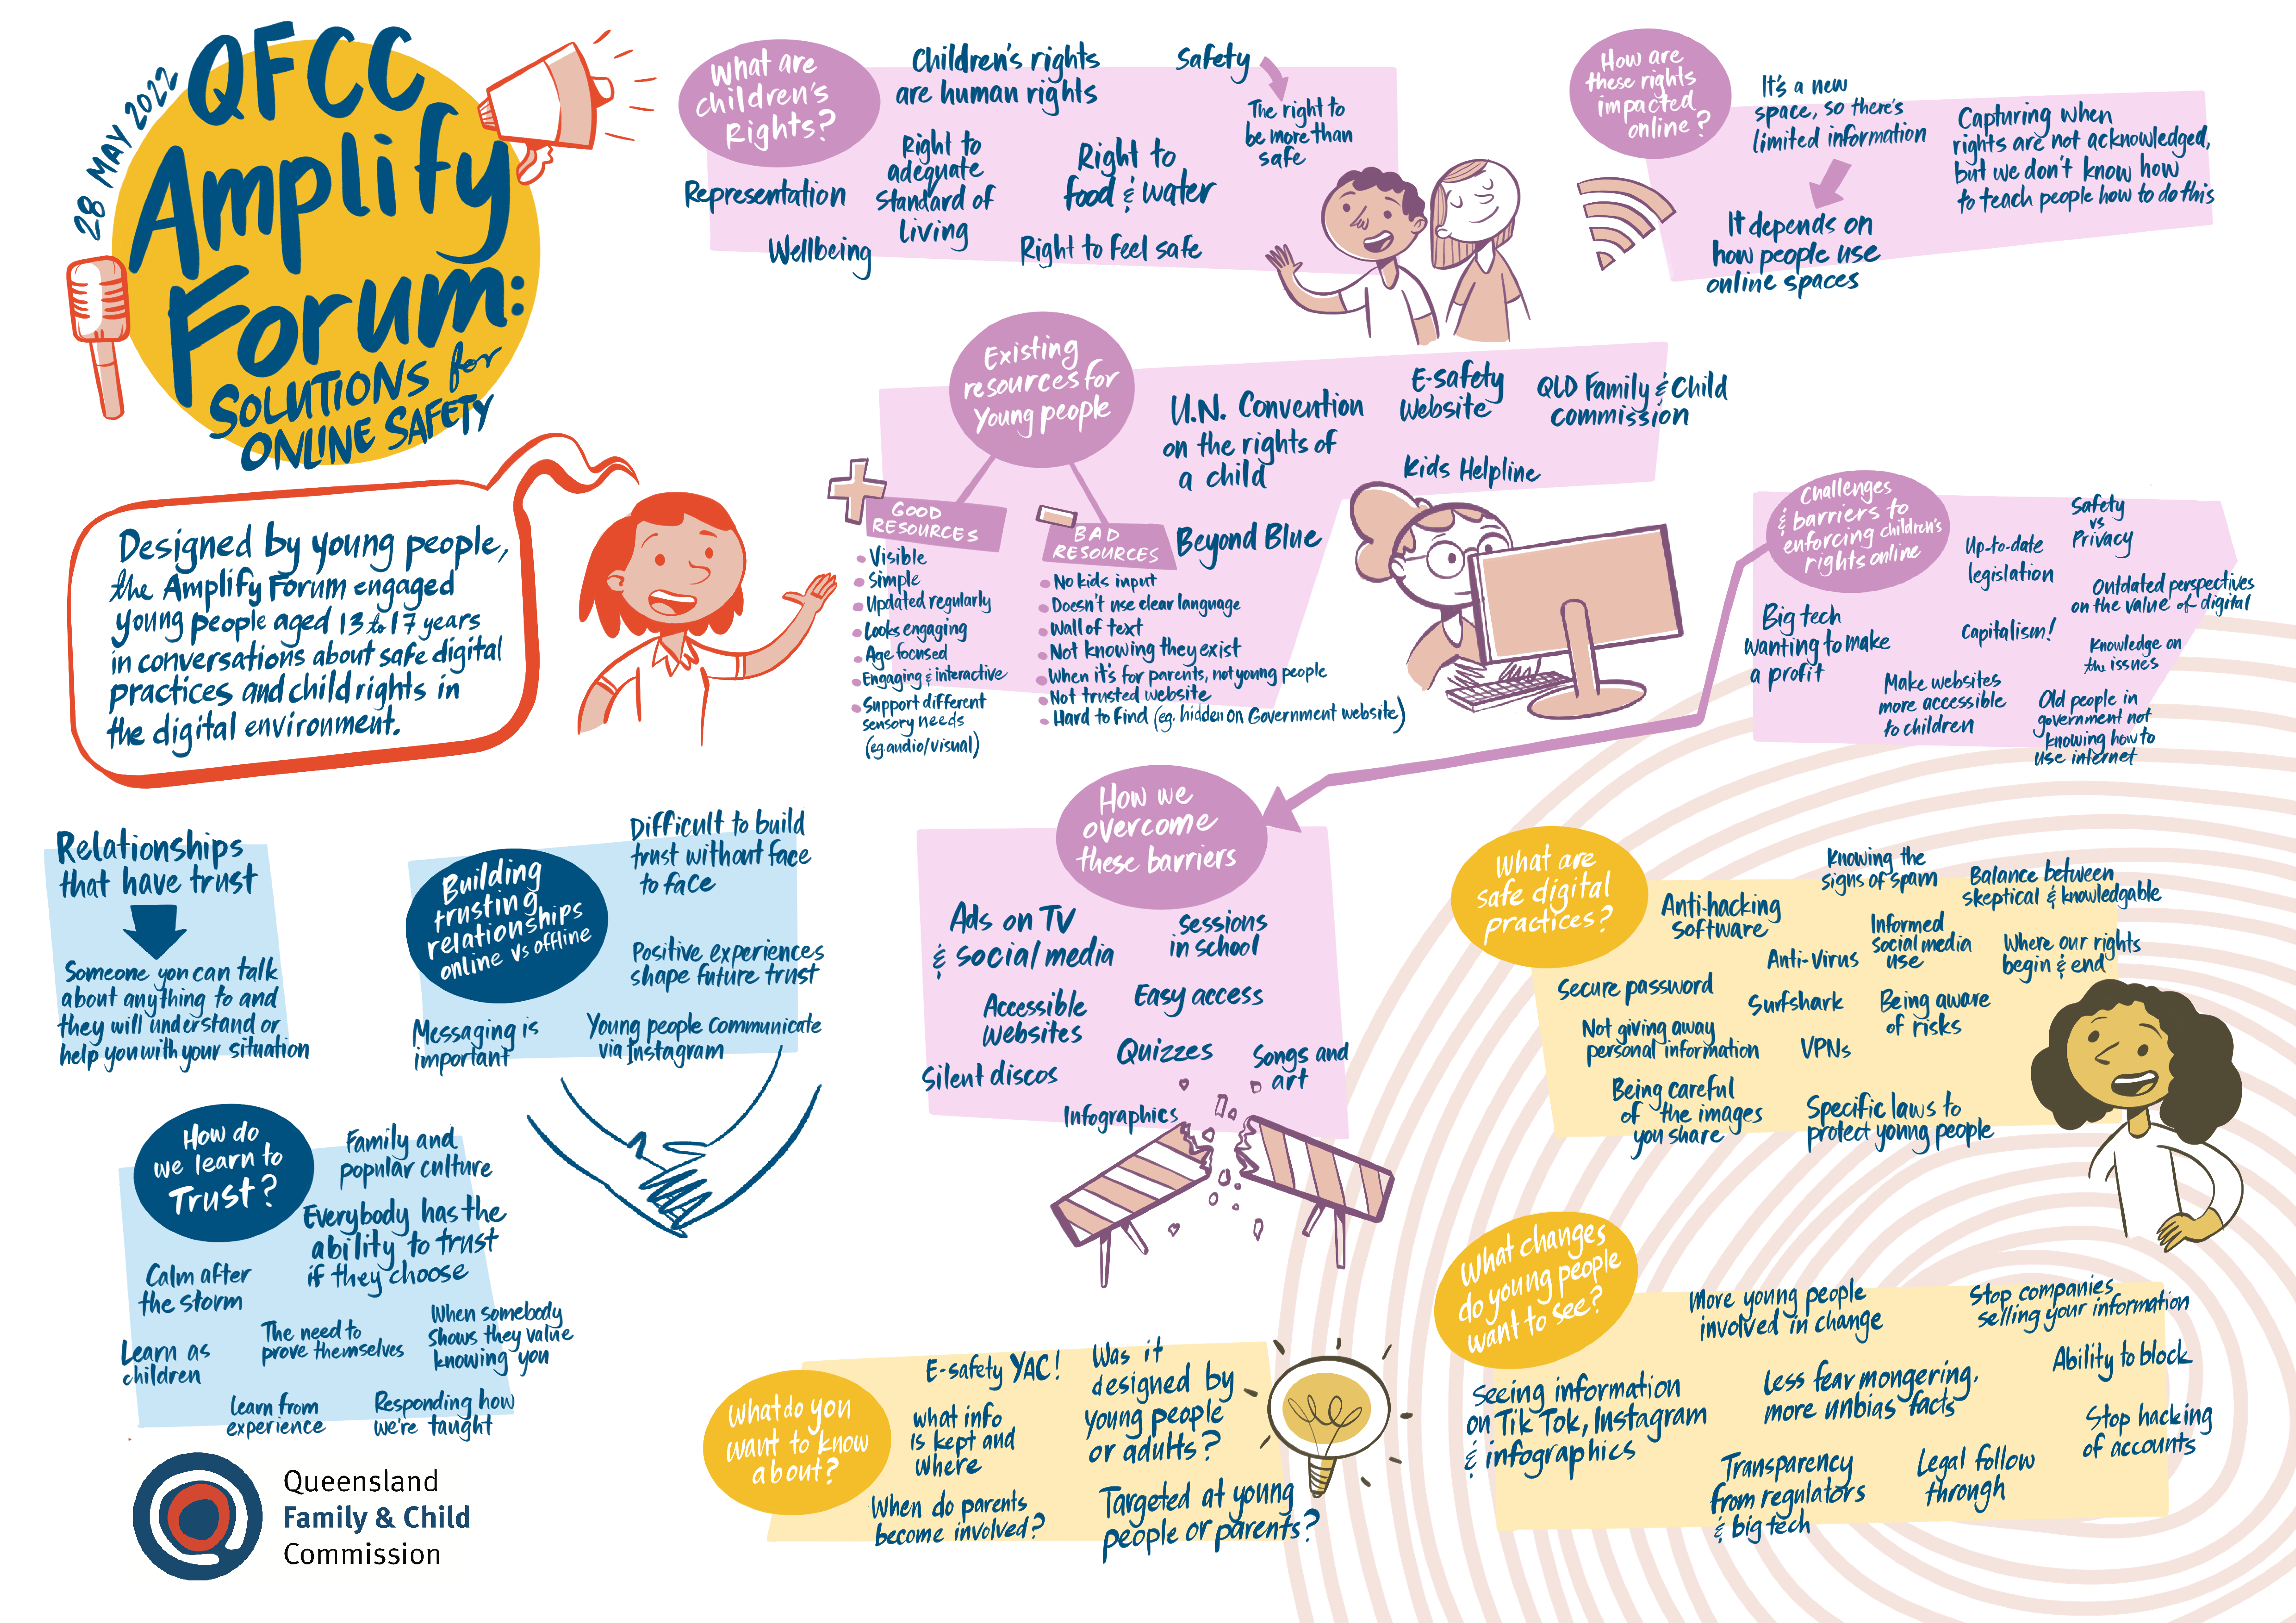 28 MAY 2022
QFCC
Amplify
Forum:
SOLUTIONS for
ONLINE SAFETY
Designed by young people,
the Amplify Forum engaged
young people aged 13 to 17 years
in conversations about safe digital
practices and child rights in
the digital environment.
What are
children's
Rights?
Children's rights
are human rights
Safety
The right to
be more than
safe
Representation
Right to
adequate
standard of
living
Right to
food & water
Wellbeing
Right to feel safe
How are
these rights
impacted
online?
It's a new
space, so there's
limited information
It depends on
how people use
online spaces
Capturing when
rights are not acknowledged,
but we don't know how
to teach people how to do this
Existing
resources for
Young people
U.N. Convention
on the rights of
a child
E-safety
Website
QLD Family & Child
commission
Kids Helpline
Beyond Blue
GOOD
RESOURCES
Visible
Simple
Updated regularly
Looks engaging
Age focused
Engaging & interactive
Support different
sensory needs
(eg. audio/visual)
BAD
RESOURCES
No kids input
Doesn't use clear language
Wall of text
Not knowing they exist
When it's for parents, not young people
Not trusted website
Hard to find (eg. hidden on Government website)
Challenges
& barriers to
enforcing children's
rights online
Safety
vs
Privacy
Up-to-date
legislation
Outdated perspectives
on the value of digital
Big tech
wanting to make
a profit
Capitalism!
Knowledge on
the issues
Make websites
more accessible
to children
Old people in
government not
knowing how to
use internet
How we
overcome
these barriers
Ads on TV
& social media
sessions
in school
Accessible
Websites
Easy access
Quizzes
Silent discos
Songs and
art
Infographics
Relationships
that have trust
Someone you can talk
about anything to and
they will understand or
help you with your situation
Building
trusting
relationships
online vs offline
Difficult to build
trust without face
to face
Positive experiences
shape future trust
Messaging is
important
Young people communicate
via Instagram
How do
we learn to
Trust?
Family and
popular culture
Everybody has the
ability to trust
if they choose
Calm after
the storm
Learn as
children
The need to
prove themselves
When somebody
shows they value
knowing you
Learn from
experience
Responding how
we're taught
What are
safe digital
practices?
Knowing the
signs of spam
Balance between
skeptical & knowledgable
Anti-hacking
software
Informed
social media
use
Anti-Virus
Where our rights
begin & end
Secure password
Surfshark
Being aware
of risks
Not giving away
personal information
VPNs
Being careful
of the images
you share
Specific laws to
protect young people
What changes
do young people
want to see?
More young people
involved in change
Stop companies
selling your information
Seeing information
on Tik Tok, Instagram
& infographics
Less fear mongering,
more unbias facts
Ability to block
Stop hacking
of accounts
Transparency
from regulators
& big tech
Legal follow
through
What do you
want to know
about?
E-safety YAC!
Was it
designed by
young people
or adults?
what info
is kept and
where
When do parents
become involved?
Targeted at young
people or parents?
Queensland
Family & Child
Commission